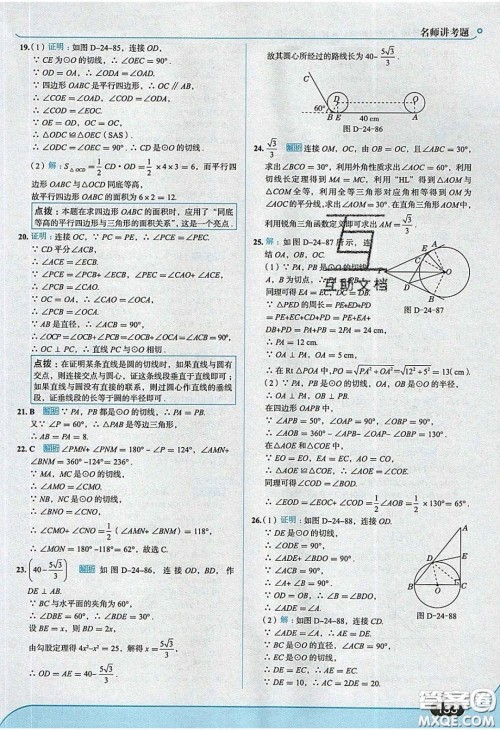 名师讲考题
19.(1) 证明: 如图 D-24-85, 连接 OD,
∵ CE 为⊙O 的切线, ∴ ∠OEC = 90°.
∵ OD = OA, ∴ ∠ODA = ∠OAD.
∵ 四边形 OABC 是平行四边形, ∴ OC∥AB,
∴ ∠COE = ∠OAD, ∠COD = ∠ODA,
∴ ∠COE = ∠COD.
∵ OE = OD, OC = OC,
∴ △ODC≌△OEC (SAS).
∴ ∠ODC = ∠OEC = 90°. ∴ CD 是⊙O 的切线.
(2) 解: S△OCD = 1/2 CD·OD = 1/2 ×4×3 = 6, 而平行四
边形 OABC 与 △OCD 同底等高,
故平行四边形 OABC 的面积为 6×2 = 12.
点拨: 本题在求四边形 OABC 的面积时, 应用了 “同底
等高的平行四边形与三角形的面积关系”, 这是一个亮点.
20. 证明: 连接 OC, ∵ PC = PE, ∴ ∠PCE = ∠PEC.
∵ CD 平分∠ACB,
∴ ∠ACE = ∠ECB.
∵ ∠PCE = ∠PCB+ ∠ECB, ∠PEC = ∠CAO+ ∠ACE,
∴ ∠PCB = ∠CAO.
∵ OC = OA, ∴ ∠CAO = ∠OCA,
∴ ∠PCB = ∠OCA.
∵ AB 是直径, ∴ ∠ACB = 90°,
∴ ∠PCO = ∠PCB+∠OCB=∠OCA+∠OCB=∠ACB=90°.
∴ OC ⊥ PC, ∴ 直线 PC 与⊙O 相切.
点拨: 在证明某条直线是圆的切线时, 如果直线与圆有
交点, 则连接交点与圆心, 证这条线段垂直于直线即可;
如果直线与圆没有直接的联系, 则过圆心作直线的垂线
段, 证垂线段的长等于圆的半径即可.
21. B 解析 ∵ PA, PB 都是⊙O 的切线, ∴ PA = PB.
又∵ ∠P = 60°, ∴ △PAB 是等边三角形,
∴ AB = PA = 8.
22. C 解析 ∠PMN+ ∠PNM = 180° - ∠P = 124°, ∠AMN+
∠BNM = 360° -124° = 236°.
∵ MA, MC 是⊙O 的切线,
∴ ∠AMO = ∠CMO.
∵ NB, NC 是⊙O 的切线,
∴ ∠BNO = ∠CNO,
∴ ∠CMO+ ∠CNO = 1/2 (∠AMN+∠BNM) = 118°,
∴ ∠MON = 180° -118° = 62°, 故选 C.
23. (40- 5√3/3) 解析 如 图 D-24-86, 连 接 OD, BD, 作
DE ⊥ AB.
∵ BC 与水平面的夹角为 60°,
∴ ∠DBE = 60°, ∴ ∠BDE = 30°.
设 BE = x, 则 BD = 2x,
由勾股定理得 4x² -x² = 25, 解得 x = 5√3/3,
∴ OD = AE = 40- 5√3/3.
故其圆心所经过的路线长为 40- 5√3/3.
C
D
O
60°
B E
40 cm
A
图 D-24-86
24. √3/3 解析 连接 OM, OC, 由 OB = OC, 且∠ABC = 30°,
求出∠BCO = 30°, 利用外角性质求出∠AOC = 60°, 利用切
线长定理得到 MA = MC, 利用 “HL” 得到 △AOM 与
△COM 全等, 利用全等三角形对应角相等得到 OM 为
∠AOC 的平分线, 求出∠AOM = 30°. 在直角三角形 AOM 中,
利用锐角三角函数定义即可求出 AM = √3/3.
25. 解: 如图 D-24-87 所示, 连
结 OA, OB, OC.
(1) ∵ PA, PB 是⊙O 的切线,
A, B 为切点, ∴ PA = PB.
同理可得 EA = EC, DC = DB.
∵ △PED 的周长 = PE+PD+ED=
PE+EC+CD+PD = PE+EA+
DB+PD = PA+PB = 24, ∴ PA = 12 cm.
∵ OA ⊥ PA, OA = 5 cm,
∴ 在 Rt △POA 中, PO = √PA² +OA² = √12² +5² = 13( cm).
(2) ∵ PA, PB 是⊙O 的切线, OA, OB 是⊙O 的半径,
在四边形 OAPB 中,
∵ ∠APB = 50°, ∠OAP = ∠OBP = 90°,
∴ ∠AOB = 360° - ∠APB- ∠OAP- ∠OBP = 130°.
在 △AOE 和 △COE 中,
∵ EO = EO, EA = EC, AO = CO,
∴ △AOE≌△COE, ∴ ∠AOE = ∠COE.
同理可得∠BOD = ∠COD,
∴ ∠EOD = ∠EOC+ ∠COD = 1/2 ∠AOB = 1/2 ×130° = 65°.
A
E
C
O
D
B
图 D-24-87
互助文档
26.(1) 证明: 如图 D-24-88, 连接 OD.
∵ DE 是⊙O 的切线,
∴ ∠ODE = 90°,
∴ ∠ADE+ ∠BDO = 90°.
∵ ∠ACB = 90°,
∴ ∠A+ ∠B = 90°.
∵ OD = OB, ∴ ∠B = ∠BDO,
∴ ∠ADE = ∠A.
(2) 解: 如图 D-24-88, 连接 CD.
∵ ∠ADE = ∠A, ∴ AE = DE.
∵ BC 是⊙O 的直径, ∠ACB = 90°,
∴ EC 是⊙O 的切线,
∴ DE = EC, ∴ AE = EC.
∵ DE = 10, ∴ AC = 2DE = 20.
A
E
D
B
O
C
图 D-24-88
133
答案圈
MXQE.COM